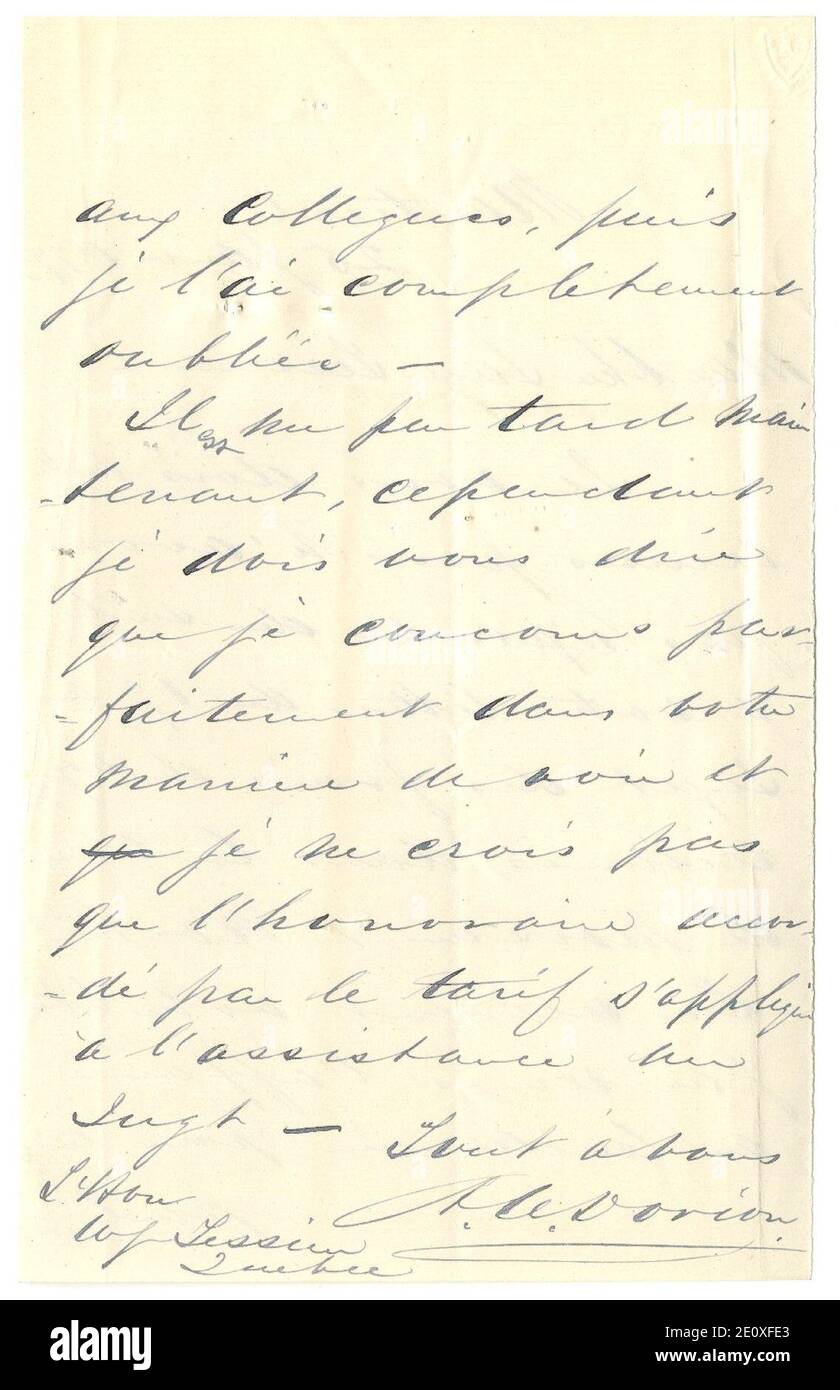 aux Collegues, puis
je l'ai completement
oubliée —
Il est un peu tard main
-tenant, cependant
je dois vous dire
que je concours par-
=faitement dans votre
maniere de voir et
je ne crois pas
que l'honoraire accor-
=dé par le tarif s'applique
a l'assistance au
Jugt — Tout à vous
L'Hon A.A. Dorion.
Tessier
Quebec
alamy
Image ID: 2E0XFE3
www.alamy.com